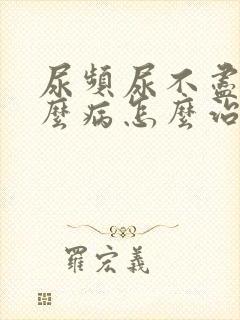 尿頻尿不盡
麼病怎麼治
羅宏義